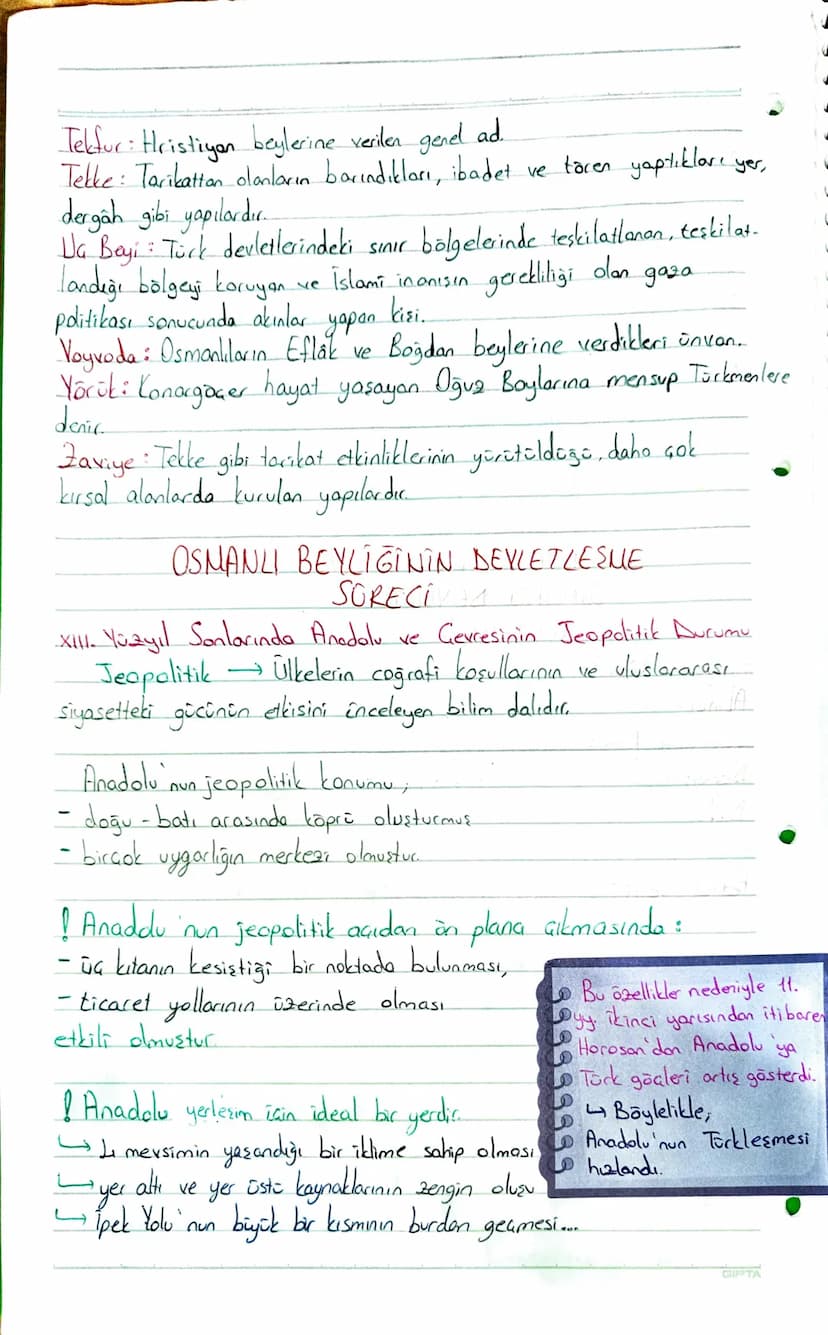 Tekfur: Hristiyan beylerine verilen genel ad.
Tekke: Tarikattan olanların barındıkları, ibadet ve tören yaptıkları yer,
dergâh gibi yapılardır.
Uç Beyi: Türk devletlerindeki sınır bölgelerinde teşkilatlanan, teşkilat-
landığı bölgeyi koruyan ve İslamî inanışın gerekliliği olan gaza
politikası sonucunda akınlar yapan kişi.
Voyvoda: Osmanlıların Eflâk ve Boğdan beylerine verdikleri ünvan.
Yörük: Konargöçer hayat yaşayan Oğuz Boylarına mensup Türkmenlere
denir.
Zaviye: Tekke gibi tarikat etkinliklerinin yürütüldüğü, daha çok
kırsal alanlarda kurulan yapılardır.
OSMANLI BEYLİĞİNİN DEVLETLEŞME
SÜRECİ
XIII. Yüzyıl Sonlarında Anadolu ve Çevresinin Jeopolitik Durumu
Jeopolitik → Ülkelerin coğrafi koşullarının ve uluslararası
siyasetteki gücünün etkisini inceleyen bilim dalıdır.
Anadolu'nun jeopolitik konumu;
- doğu-batı arasında köprü oluşturmuş
- birçok uygarlığın merkezi olmuştur.
! Anadolu'nun jeopolitik açıdan ön plana çıkmasında:
- üç kıtanın kesiştiği bir noktada bulunması,
- ticaret yollarının üzerinde olması
etkili olmuştur.
Bu özellikler nedeniyle 11.
yy. ikinci yarısından itibaren
Horosan'dan Anadolu'ya
Türk göçleri artış gösterdi.
↳ Böylelikle;
Anadolu'nun Türkleşmesi
hızlandı.
! Anadolu yerleşim için ideal bir yerdir.
↳ 4 mevsimin yaşandığı bir iklime sahip olması
↳ yer altı ve yer üstü kaynaklarının zengin oluşu
↳ İpek Yolu'nun büyük bir kısmının burdan geçmesi...
GIPTA